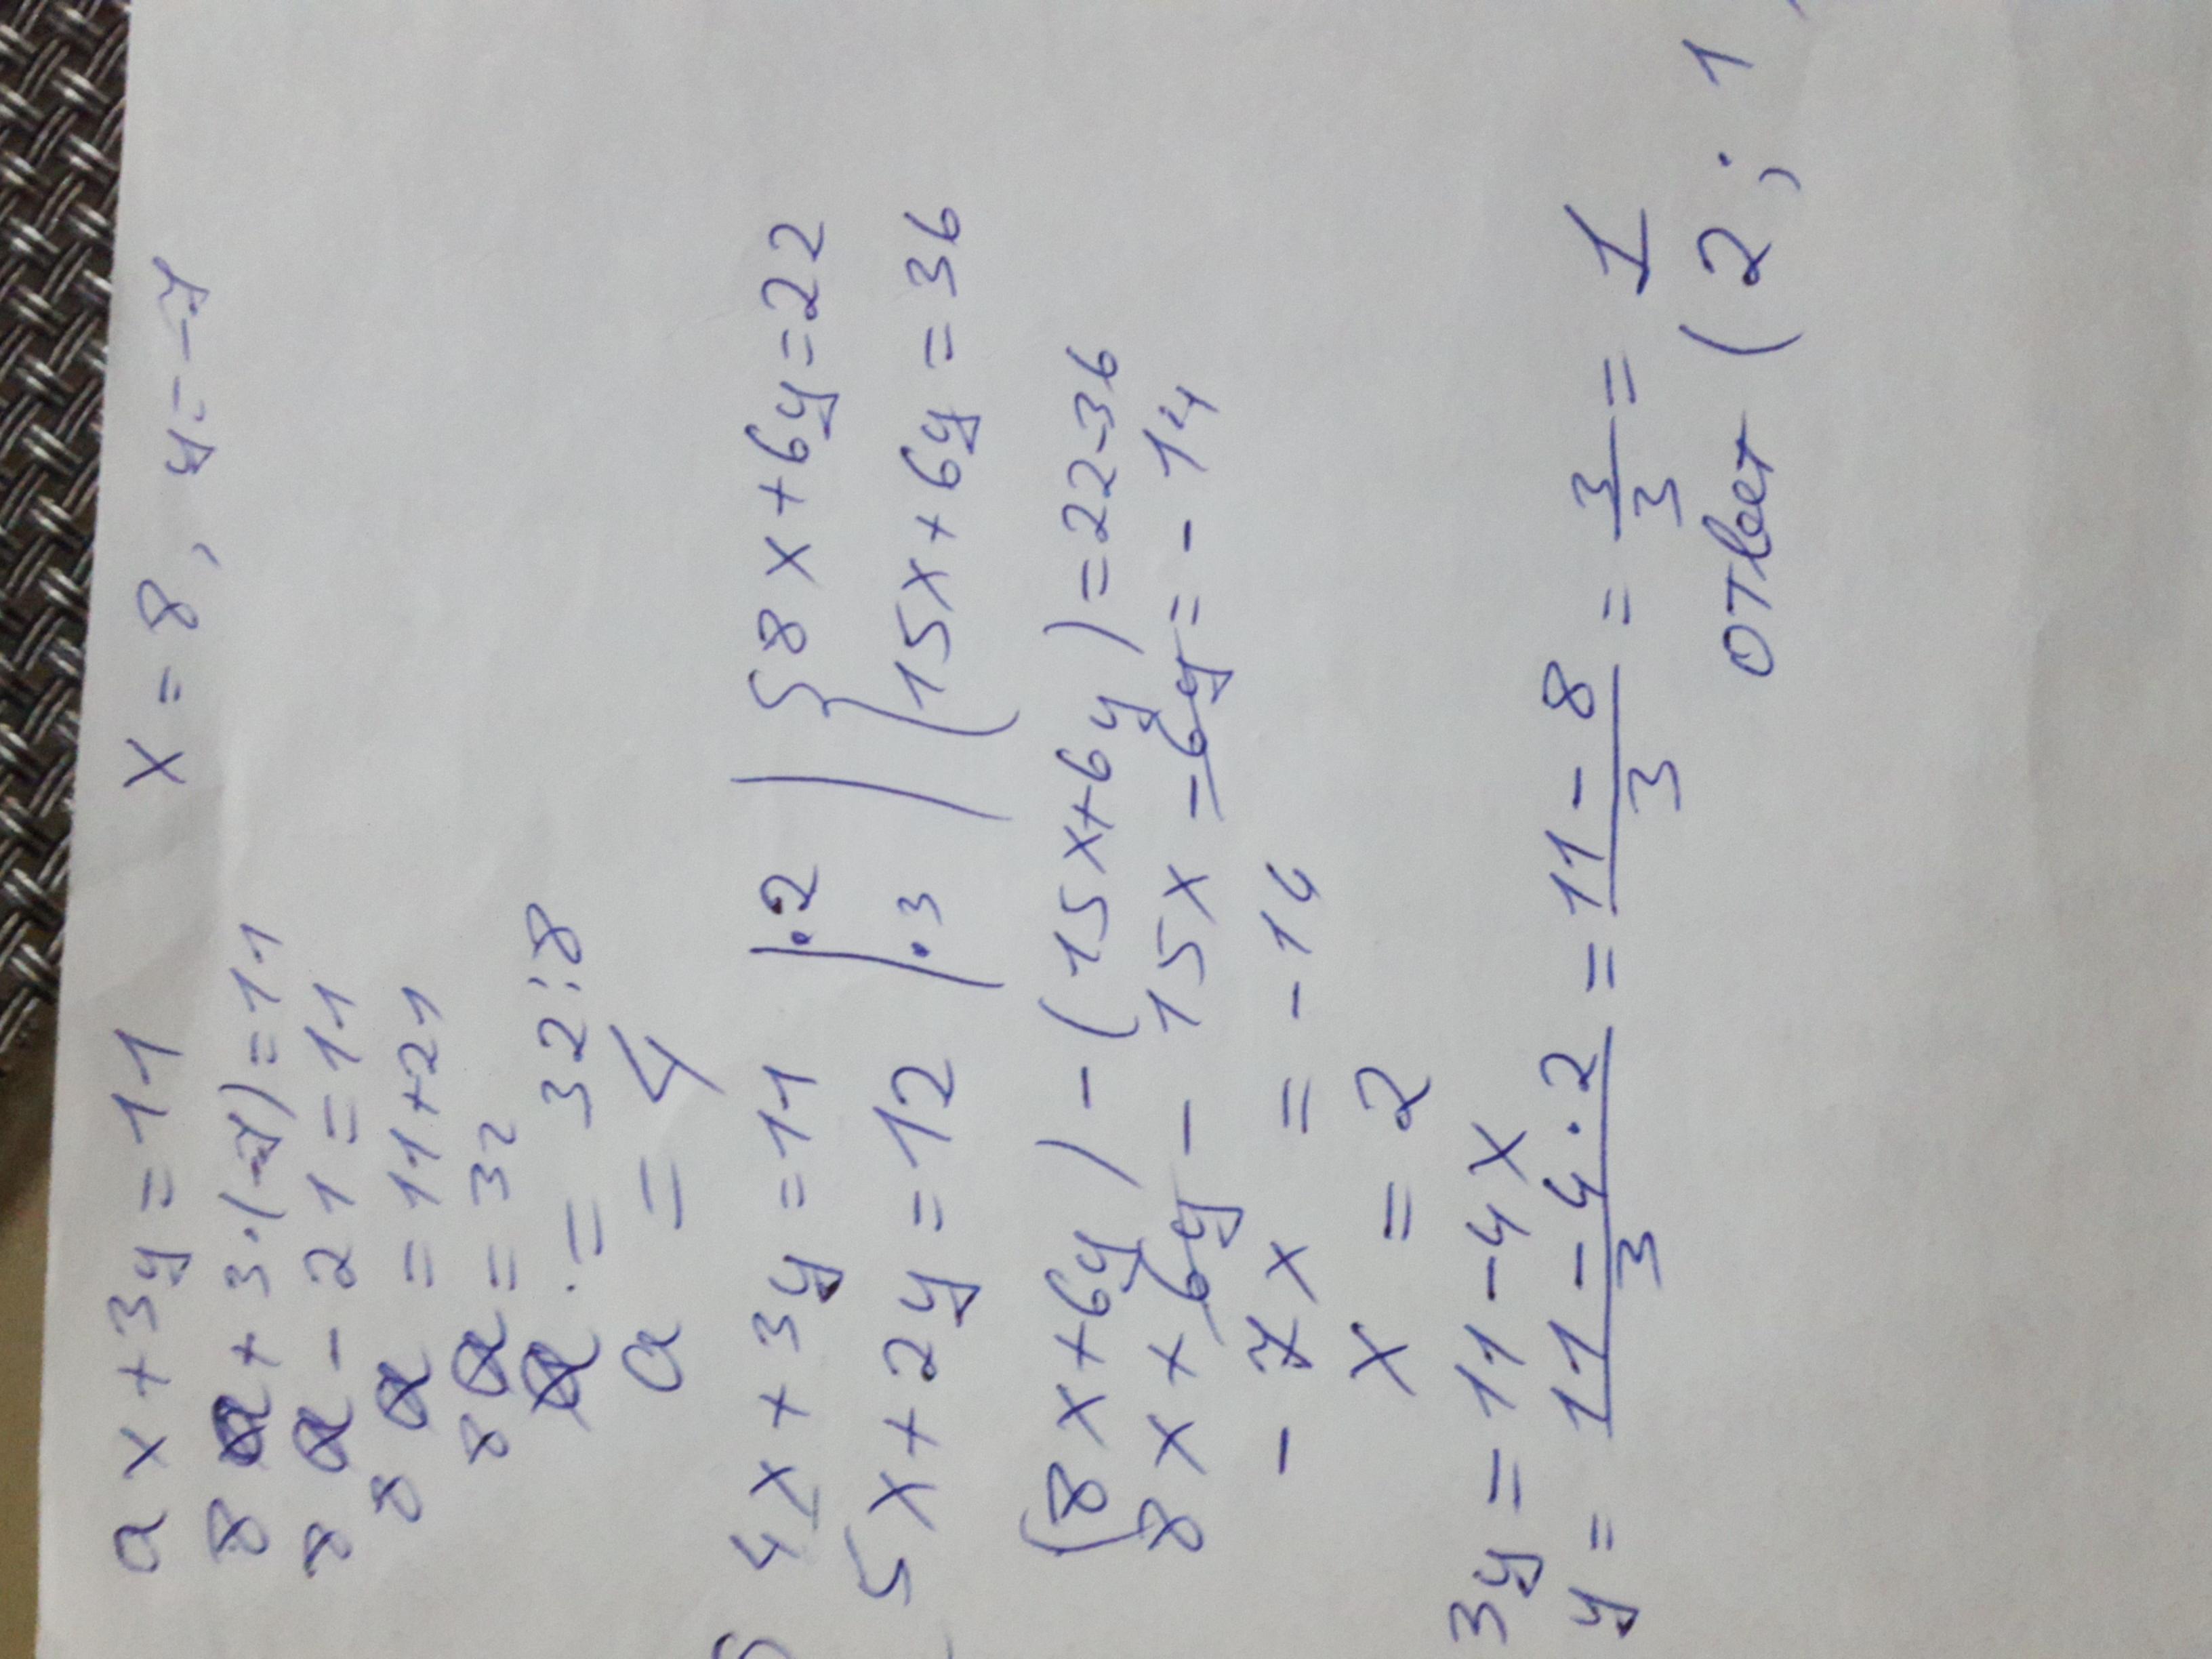 ax+3y=11 x=8, y=-7
8a+3·(-7)=11
8a-21=11
8a=11+21
8a=32
a=32:8
a=4
4x+3y=11 |·2 | {8x+6y=22
5x+2y=12 |·3 | {15x+6y=36
(8x+6y)-(15x+6y)=22-36
8x+6y-15x-6y=-14
-7x=-14
x=2
3y=11-4x
y=\frac{11-4·2}{3}=\frac{11-8}{3}=\frac{3}{3}=1
ответ (2; 1